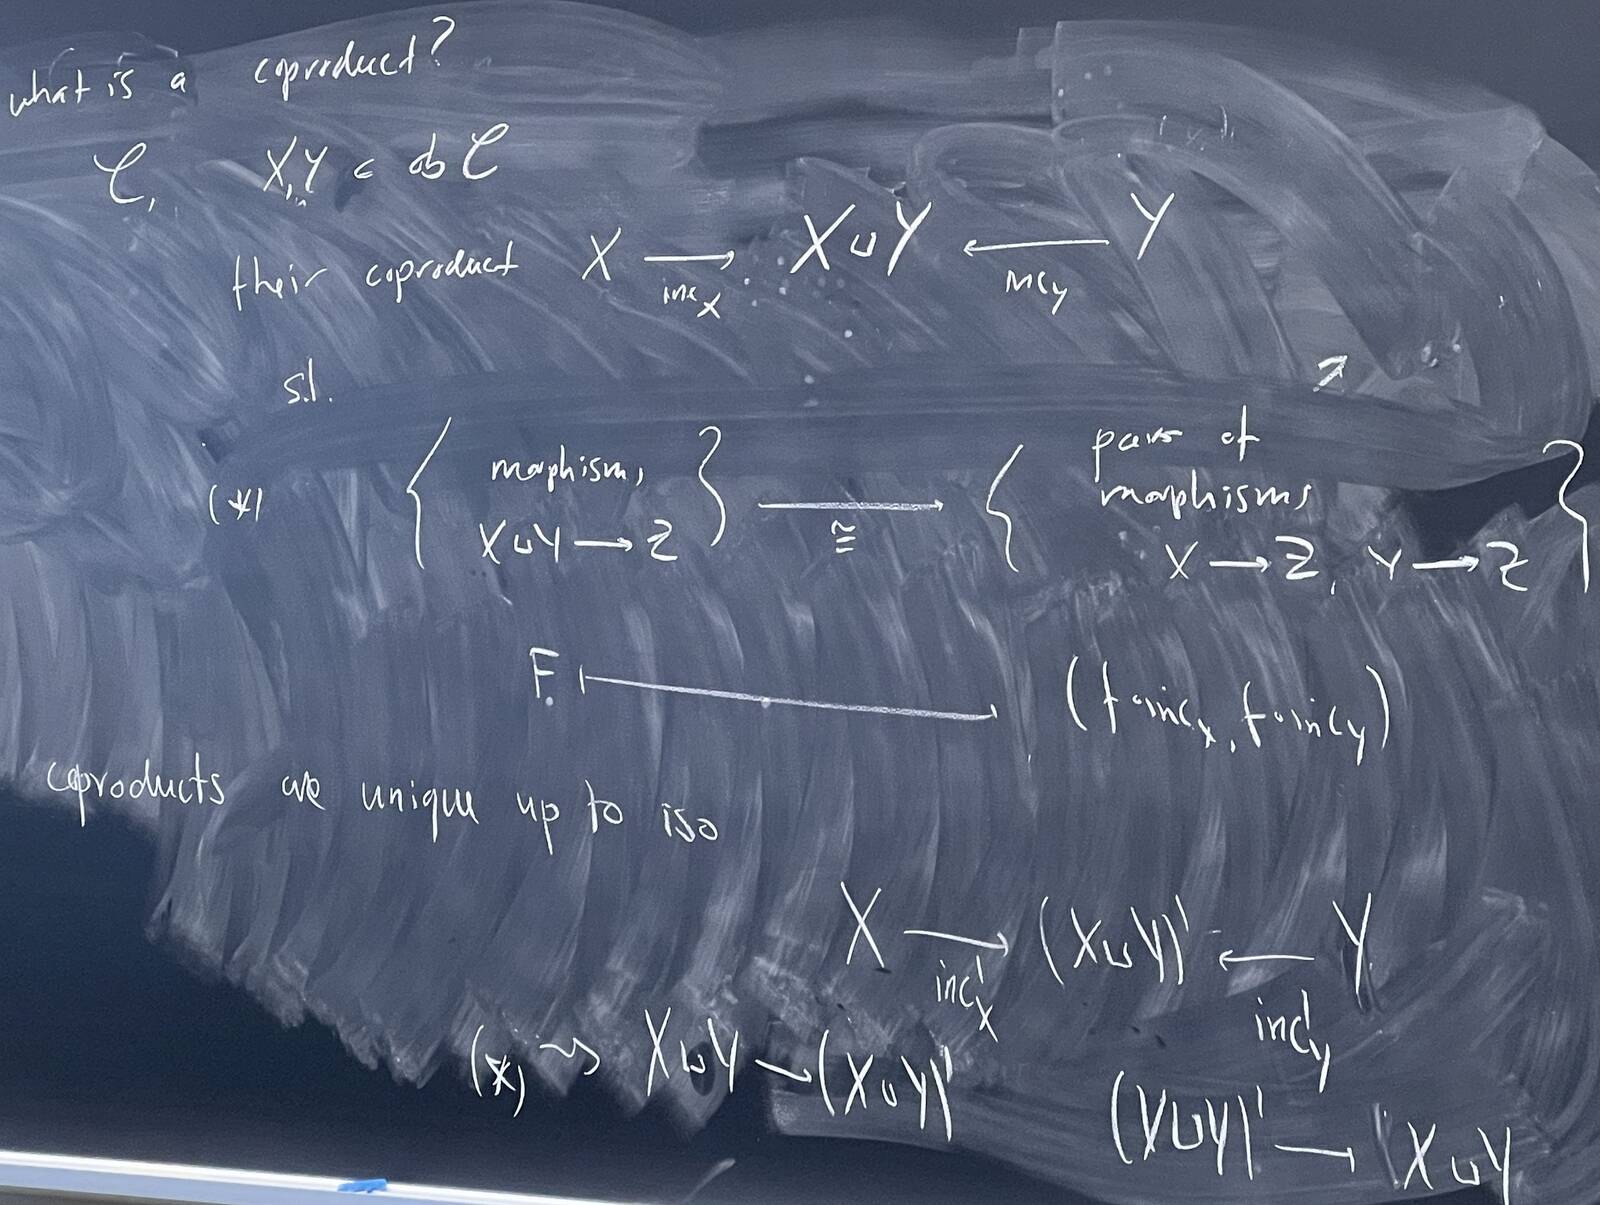 what is a coproduct?
𝒞, X,Y ∈ ob 𝒞
their coproduct X ⟶ X⊔Y ⟵ Y
inc_X inc_Y
s.t.
(*) { morphisms X⊔Y ⟶ Z } ⟶ ≅ { pairs of morphisms X ⟶ Z, Y ⟶ Z }
F ⟼ (f∘inc_X, f∘inc_Y)
coproducts are unique up to iso
X ⟶ (X⊔Y)' ⟵ Y
inc'_X inc'_Y
(*) ⇝ X⊔Y ⟶ (X⊔Y)'
(X⊔Y)' ⟶ X⊔Y